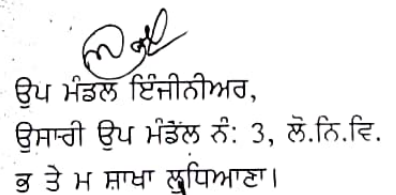 ਉਪ ਮੰਡਲ ਇੰਜੀਨੀਅਰ,
ਉਸਾਰੀ ਉਪ ਮੰਡਲ ਨੰ: 3, ਲੋ.ਨਿ.ਵਿ.
ਭ ਤੇ ਮ ਸ਼ਾਖਾ ਲੁਧਿਆਣਾ।